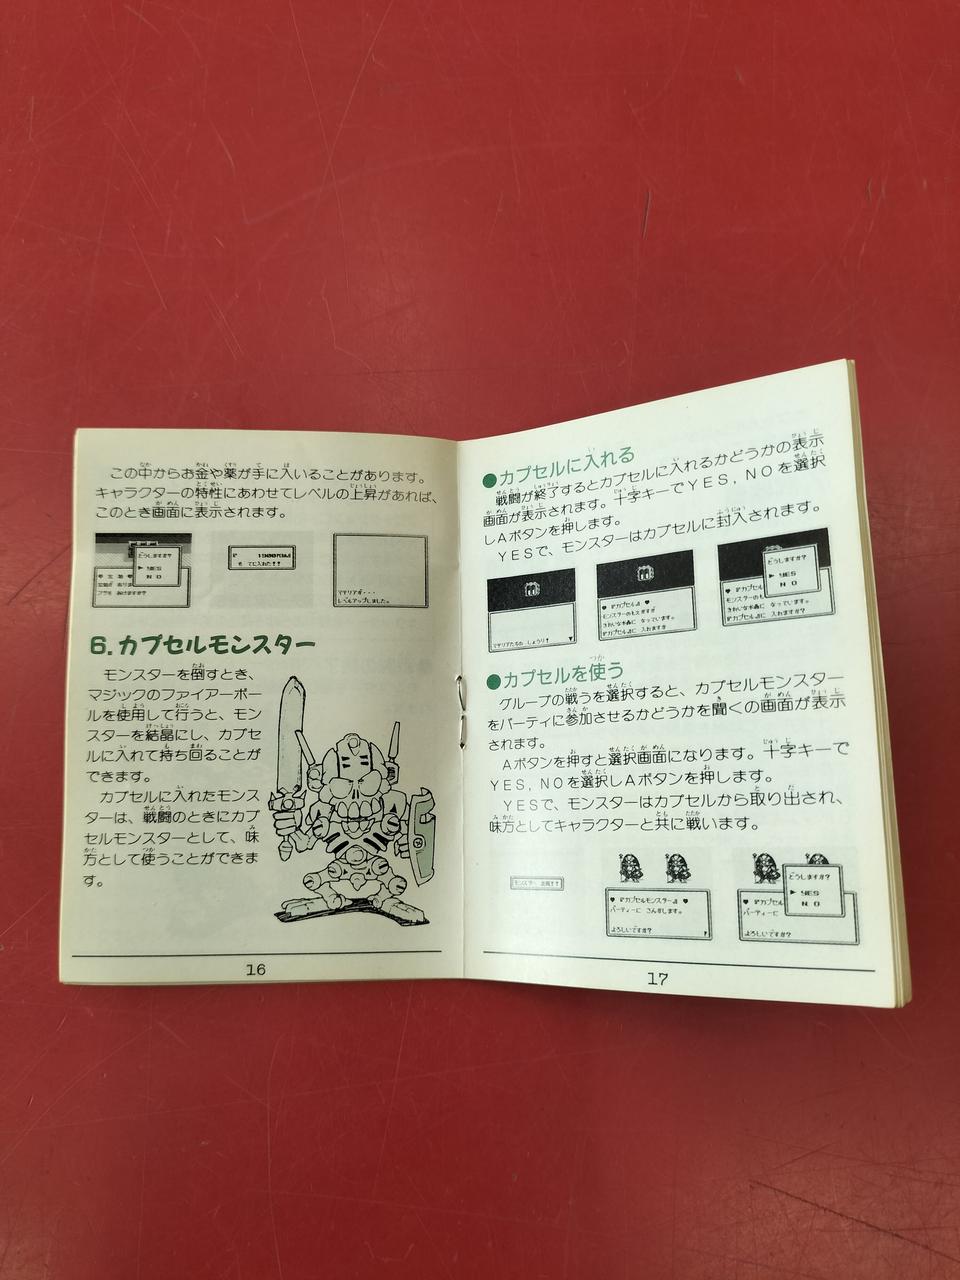 この中からお金や薬が手に入いることがあります。
キャラクターの特性にあわせてレベルの上昇があれば、
このとき画面に表示されます。
どうしますか?
▶ YES
NO
てに入れた!!
マサリアが・・・
レベルアップしました。
6.カプセルモンスター
モンスターを倒すとき、
マジックのファイアーボー
ルを使用して行うと、モン
スターを結晶にし、カプセ
ルに入れて持ち回ることが
できます。
カプセルに入れたモンス
ターは、戦闘のときにカプ
セルモンスターとして、味
方として使うことができま
す。
16
●カプセルに入れる
戦闘が終了するとカプセルに入れるかどうかの表示
画面が表示されます。十字キーでYES,NOを選択
しAボタンを押します。
YESで、モンスターはカプセルに封入されます。
マサリアたちの しょうり!
♥ 『カプセル』 ♥
モンスターのもえカすが
きれいな水晶に なっています。
『カプセル』に 入れますか
どうしますか?
▶ YES
NO
♥『カプセル』
モンスターのも
きれいな水晶に なっています。
『カプセル』に 入れますか
●カプセルを使う
グループの戦うを選択すると、カプセルモンスター
をパーティに参加させるかどうかを聞くの画面が表示
されます。
Aボタンを押すと選択画面になります。十字キーで
YES,NOを選択しAボタンを押します。
YESで、モンスターはカプセルから取り出され、
味方としてキャラクターと共に戦います。
♥ 『カプセルモンスター』 ♥
パーティーに さんかします。
よろしいですか?
どうしますか?
▶ YES
NO
♥『カプセル
パーティーに
よろしいですか?
17